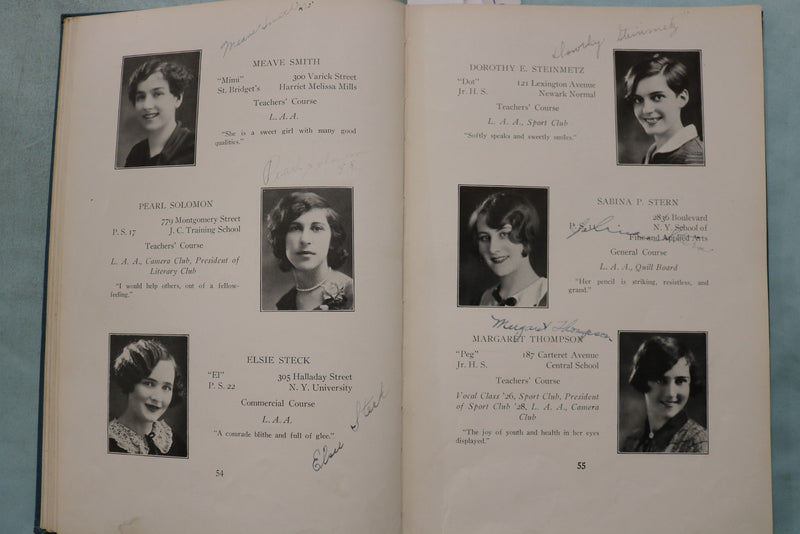 Meave Smith
MEAVE SMITH
"Mimi" 300 Varick Street
St. Bridget's Harriet Melissa Mills
Teachers' Course
L. A. A.
"She is a sweet girl with many good
qualities."
Pearl Solomon
PEARL SOLOMON
779 Montgomery Street
P. S. 17 J. C. Training School
Teachers' Course
L. A. A., Camera Club, President of
Literary Club
"I would help others, out of a fellow-
feeling."
ELSIE STECK
"El" 305 Halladay Street
P. S. 22 N. Y. University
Commercial Course
L. A. A.
"A comrade blithe and full of glee."
Elsie Steck
54
Dorothy Steinmetz
DOROTHY E. STEINMETZ
"Dot" 121 Lexington Avenue
Jr. H. S. Newark Normal
Teachers' Course
L. A. A., Sport Club
"Softly speaks and sweetly smiles."
SABINA P. STERN
2836 Boulevard
N. Y. School of
Fine and Applied Arts
General Course
L. A. A., Quill Board
"Her pencil is striking, resistless, and
grand."
Margaret Thompson
MARGARET THOMPSON
"Peg" 187 Carteret Avenue
Jr. H. S. Central School
Teachers' Course
Vocal Class '26, Sport Club, President
of Sport Club '28, L. A. A., Camera
Club
"The joy of youth and health in her eyes
displayed."
55